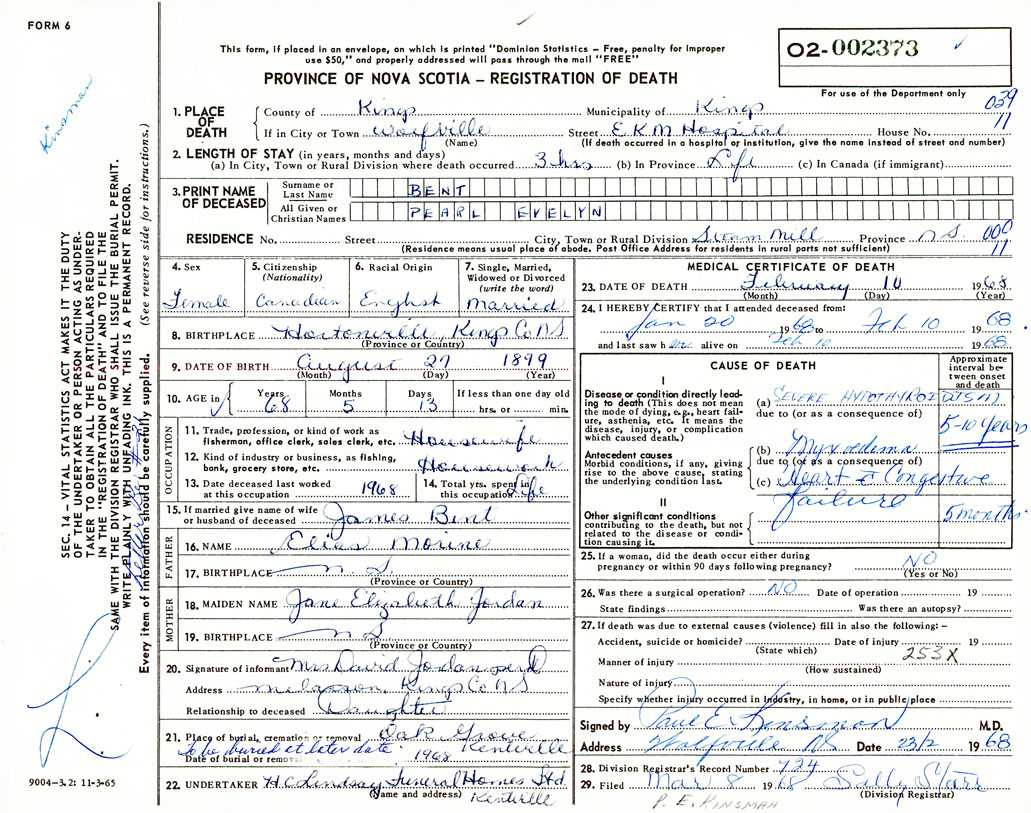 FORM 6
This form, if placed in an envelope, on which is printed "Dominion Statistics – Free, penalty for improper
use $50," and properly addressed will pass through the mail "FREE"
PROVINCE OF NOVA SCOTIA – REGISTRATION OF DEATH
O2-002373
For use of the Department only
039
11
Kinsman
SEC. 14 – VITAL STATISTICS ACT MAKES IT THE DUTY
OF THE UNDERTAKER OR PERSON ACTING AS UNDER-
TAKER TO OBTAIN ALL THE PARTICULARS REQUIRED
IN THE "REGISTRATION OF DEATH" AND TO FILE THE
SAME WITH THE DIVISION REGISTRAR WHO SHALL ISSUE THE BURIAL PERMIT.
WRITE PLAINLY WITH UNFADING INK. THIS IS A PERMANENT RECORD.
Every item of information should be carefully supplied. (See reverse side for instructions.)
1. PLACE OF DEATH County of Kings Municipality of Kings
If in City or Town Wolfville Street E.K.M Hospital House No.
(Name) (If death occurred in a hospital or institution, give the name instead of street and number)
2. LENGTH OF STAY (in years, months and days)
(a) In City, Town or Rural Division where death occurred 3 hrs (b) In Province Life (c) In Canada (if immigrant)
3. PRINT NAME OF DECEASED Surname or Last Name BENT
All Given or Christian Names PEARL EVELYN
RESIDENCE No. Street City, Town or Rural Division Steam Mill Province N.S. 000
11
(Residence means usual place of abode. Post Office Address for residents in rural parts not sufficient)
4. Sex Female
5. Citizenship (Nationality) Canadian
6. Racial Origin English
7. Single, Married, Widowed or Divorced (write the word) Married
8. BIRTHPLACE Hortonville, Kings Co NS
(Province or Country)
9. DATE OF BIRTH August 27 1899
(Month) (Day) (Year)
10. AGE in Years 68 Months 5 Days 13 If less than one day old hrs. or min.
OCCUPATION
11. Trade, profession, or kind of work as
fisherman, office clerk, sales clerk, etc. Housewife
12. Kind of industry or business, as fishing,
bank, grocery store, etc. Housework
13. Date deceased last worked at this occupation 1968 14. Total yrs. spent in this occupation Life
15. If married give name of wife or husband of deceased James Bent
FATHER
16. NAME Elias Morine
17. BIRTHPLACE N.S.
(Province or Country)
MOTHER
18. MAIDEN NAME Jane Elizabeth Jordan
19. BIRTHPLACE N S
(Province or Country)
20. Signature of informant Mrs David Jordan
Address Kings Co NS
Relationship to deceased Daughter
21. Place of burial, cremation or removal Oak Grove
Kentville
To be buried at later date
Date of burial or removal 1968
22. UNDERTAKER H C Lindsay Funeral Homes Ltd.
(Name and address) Kentville
9004-3.2: 11-3-65
MEDICAL CERTIFICATE OF DEATH
23. DATE OF DEATH February 10 1968
(Month) (Day) (Year)
24. I HEREBY CERTIFY that I attended deceased from:
Jan 20 1968 to Feb 10 1968
and last saw her alive on Feb 10 1968
CAUSE OF DEATH
Approximate interval between onset and death
I
Disease or condition directly lead-
ing to death (This does not mean
the mode of dying, e.g., heart fail-
ure, asthenia, etc. It means the
disease, injury, or complication
which caused death.)
(a) SEVERE HYPOTHYROIDISM
due to (or as a consequence of) 5-10 years
Antecedent causes
Morbid conditions, if any, giving
rise to the above cause, stating
the underlying condition last.
(b) Myxoedema
due to (or as a consequence of)
(c) Heart Congestive
failure
II
Other significant conditions
contributing to the death, but not
related to the disease or condi-
tion causing it.
5 months
25. If a woman, did the death occur either during
pregnancy or within 90 days following pregnancy? NO
(Yes or No)
26. Was there a surgical operation? NO Date of operation 19
State findings Was there an autopsy?
27. If death was due to external causes (violence) fill in also the following: –
Accident, suicide or homicide? Date of injury 19
(State which) 253X
Manner of injury
(How sustained)
Nature of injury
Specify whether injury occurred in industry, in home, or in public place
Signed by Paul E Kinsman M.D.
Address Wolfville NS Date 23/2 1968
28. Division Registrar's Record Number 724
29. Filed Mar 8 1968 Sally Starr
(Division Registrar)
P. E. KINSMAN